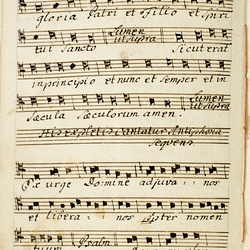 gloria Patri et Filio et Spiri
Lumen
tui Sancto ut supra Sicut erat
in principio et nunc et Semper et in
Lumen
Sæcula Sæculorum amen. ut supra
His expletis cantatur Antiphona
Sequens
Exurge Domine adjuva nos
et libera nos Propter nomen
tuum Psalm.